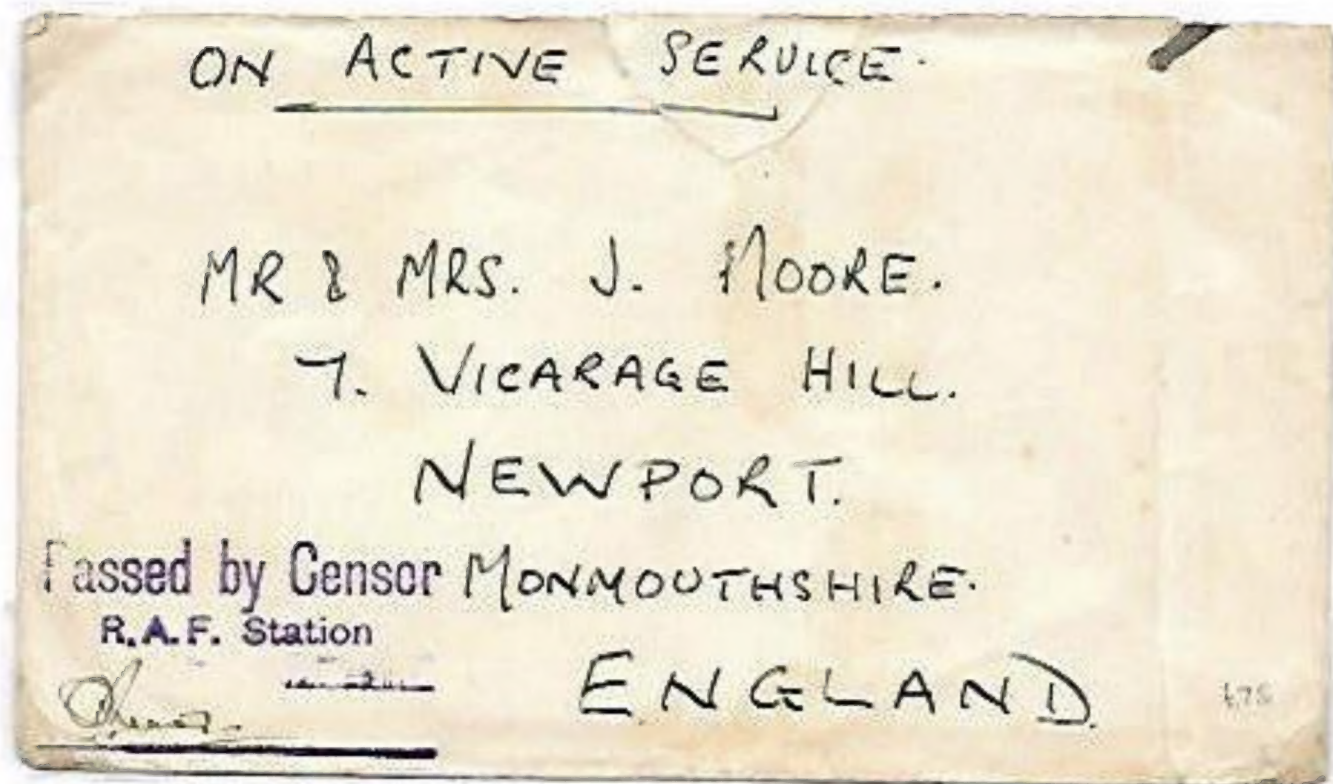 ON ACTIVE SERVICE.
MR & MRS. J. MOORE.
7. VICARAGE HILL.
NEWPORT.
MONMOUTHSHIRE.
ENGLAND.
Passed by Censor
R.A.F. Station